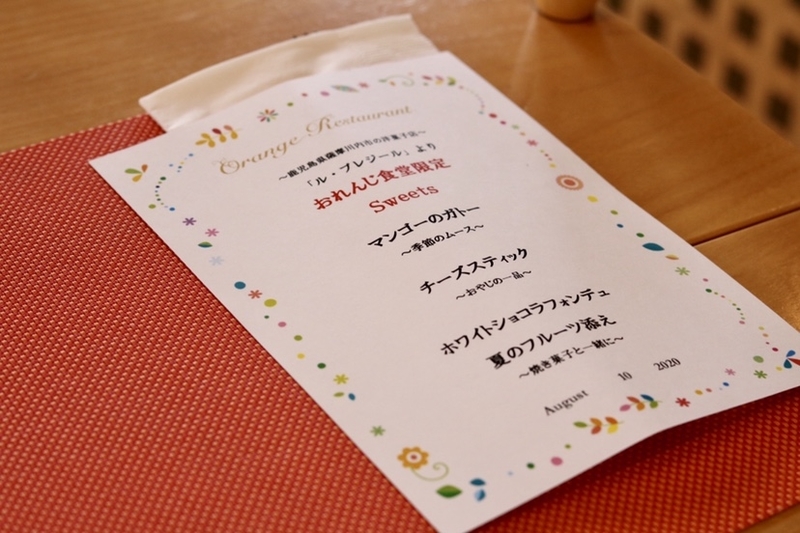 Orange Restaurant
～鹿児島県薩摩川内市の洋菓子店～
「ル・プレジール」より
おれんじ食堂限定
Sweets
マンゴーのガトー
～季節のムース～
チーズスティック
～おやじの一品～
ホワイトショコラフォンデュ
夏のフルーツ添え
～焼き菓子と一緒に～
August 10 2020